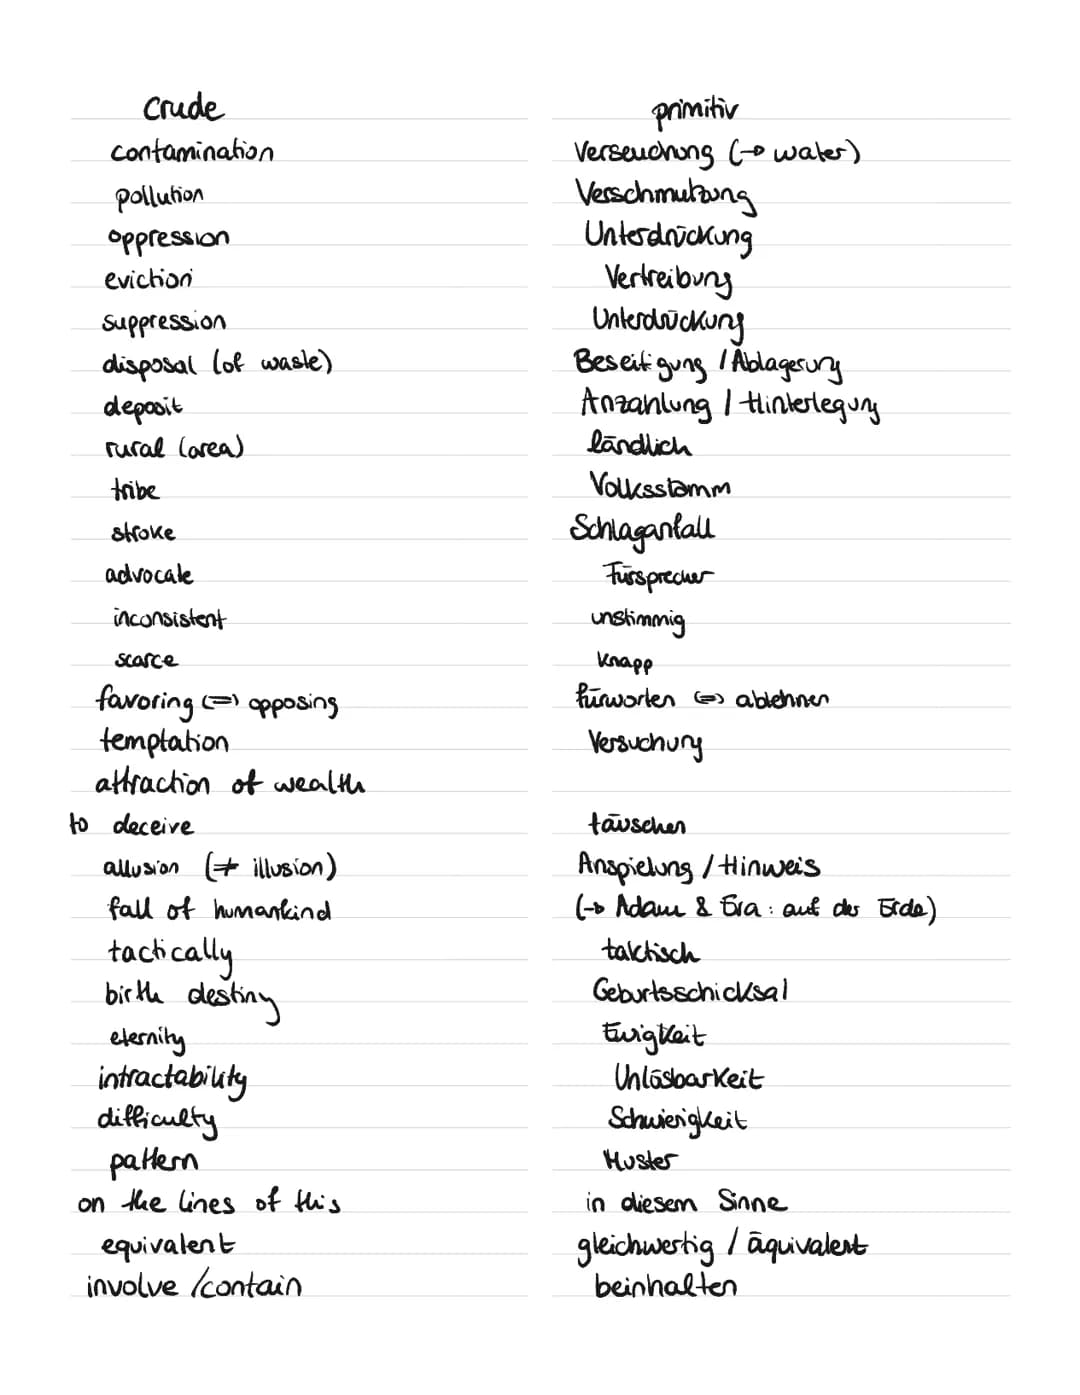 crude primitiv
contamination Verseuchung (→ water)
pollution Verschmutzung
oppression Unterdrückung
eviction Vertreibung
suppression Unterdrückung
disposal (of waste) Beseitigung / Ablagerung
deposit Anzahlung / Hinterlegung
rural (area) ländlich
tribe Volksstamm
stroke Schlaganfall
advocate Fürsprecher
inconsistent unstimmig
scarce knapp
favoring (=) opposing fürworten (=) ablehnen
temptation Versuchung
attraction of wealth
to deceive täuschen
allusion (≠ illusion) Anspielung / Hinweis
fall of humankind (→ Adam & Eva : auf der Erde)
tactically taktisch
birth destiny Geburtsschicksal
eternity Ewigkeit
intractability Unlösbarkeit
difficulty Schwierigkeit
pattern Muster
on the lines of this in diesem Sinne
equivalent gleichwertig / äquivalent
involve / contain beinhalten